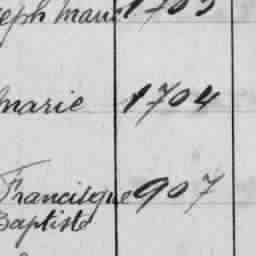 eph marie 1703
marie 1704
Francisque 907
Baptiste